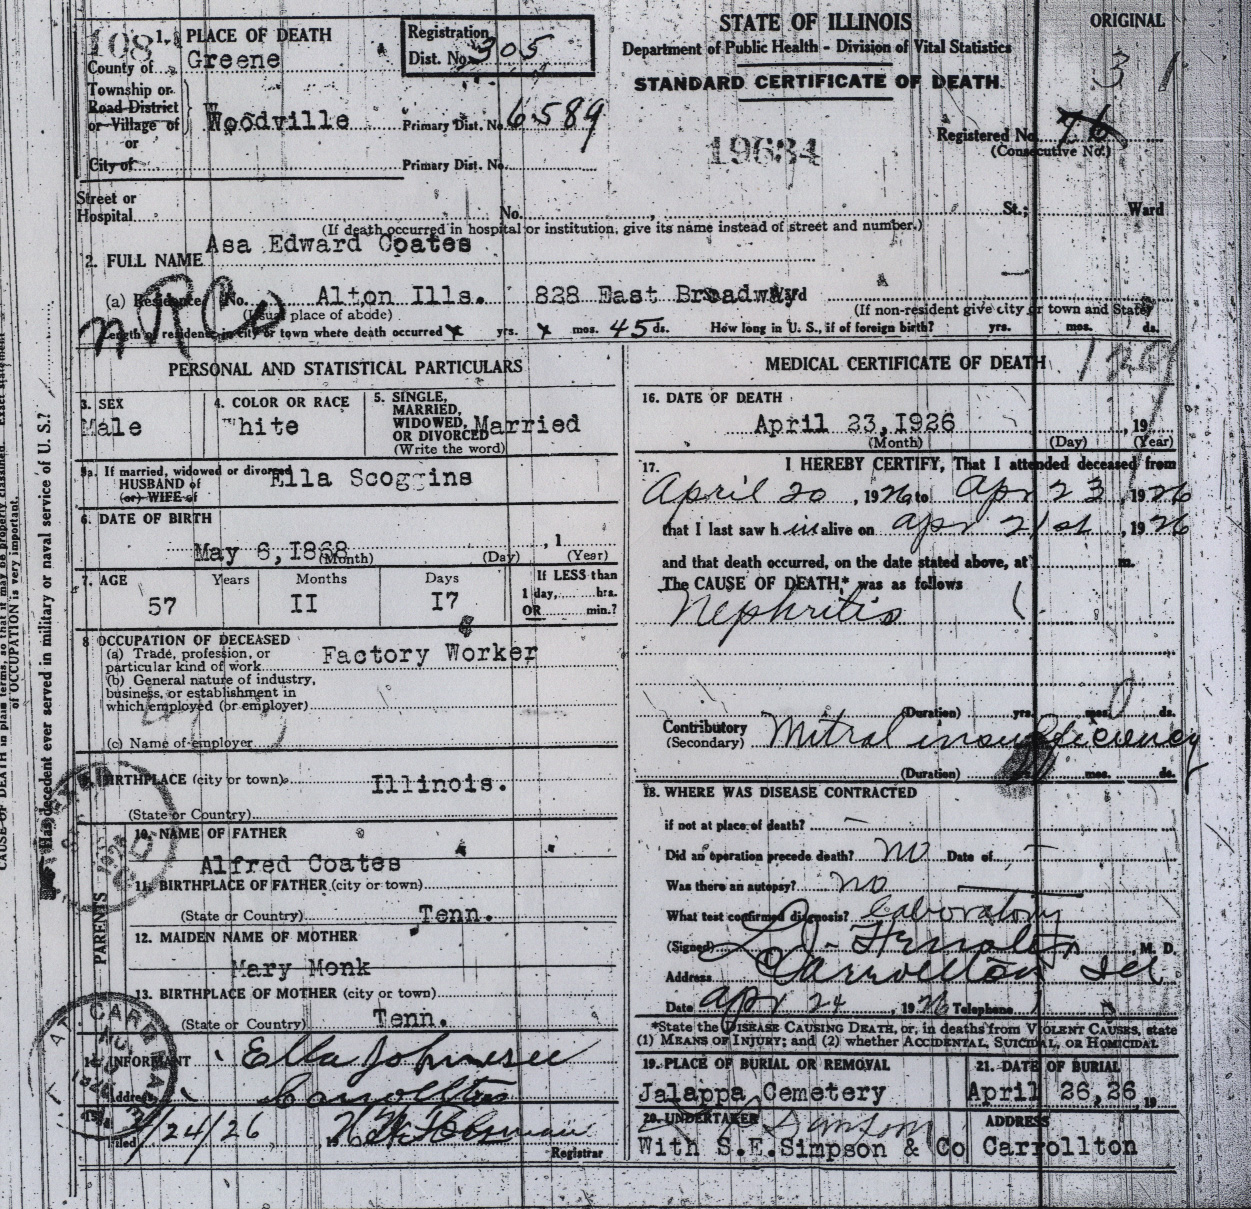 108
1. PLACE OF DEATH
County of Greene
Registration
Dist. No. 305
STATE OF ILLINOIS
Department of Public Health - Division of Vital Statistics
STANDARD CERTIFICATE OF DEATH
ORIGINAL
31
Township or
Road District
or Village of
or
City of
Woodville
Primary Dist. No. 6589
Primary Dist. No.
19684
Registered No. 76
(Consecutive No.)
Street or
Hospital No. St.; Ward
(If death occurred in hospital or institution, give its name instead of street and number.)
2. FULL NAME Asa Edward Coates
(a) Residence No. Alton Ills. 828 East Broadway
(Usual place of abode) (If non-resident give city or town and State)
Length of residence in city or town where death occurred x yrs. x mos. 45 ds. How long in U. S., if of foreign birth? yrs. mos. ds.
PERSONAL AND STATISTICAL PARTICULARS
3. SEX
Male
4. COLOR OR RACE
White
5. SINGLE,
MARRIED,
WIDOWED,
OR DIVORCED Married
(Write the word)
5a. If married, widowed or divorced
HUSBAND of
(or) WIFE of
Ella Scoggins
6. DATE OF BIRTH
May 6, 1868
(Month) (Day) , 1 (Year)
7. AGE Years Months Days If LESS than
57 II I7 1 day, hrs.
OR min.?
8 OCCUPATION OF DECEASED
(a) Trade, profession, or
particular kind of work Factory Worker
(b) General nature of industry,
business, or establishment in
which employed (or employer)
(c) Name of employer
9. BIRTHPLACE (city or town) Illinois.
(State or Country)
PARENTS
10. NAME OF FATHER
Alfred Coates
11. BIRTHPLACE OF FATHER (city or town)
(State or Country) Tenn.
12. MAIDEN NAME OF MOTHER
Mary Monk
13. BIRTHPLACE OF MOTHER (city or town)
(State or Country) Tenn.
14. INFORMANT Ella Johnson
Address Carrollton
Filed 4/24/26 19
Registrar
MEDICAL CERTIFICATE OF DEATH
16. DATE OF DEATH
April 23, I926 , 19
(Month) (Day) (Year)
17. I HEREBY CERTIFY, That I attended deceased from
April 20, 1926 to Apr 23, 1926
that I last saw him alive on Apr 21st, 1926
and that death occurred, on the date stated above, at m.
The CAUSE OF DEATH,* was as follows
Nephritis
(Duration) yrs. mos. ds.
Contributory
(Secondary) Mitral insufficiency
(Duration) yrs. mos. ds.
18. WHERE WAS DISEASE CONTRACTED
if not at place of death? —
Did an operation precede death? no Date of —
Was there an autopsy? no
What test confirmed diagnosis? Laboratory
(Signed) M. D.
Address Carrollton Ill
Date Apr 24, 1926 Telephone
*State the DISEASE CAUSING DEATH, or, in deaths from VIOLENT CAUSES, state
(1) MEANS OF INJURY; and (2) whether ACCIDENTAL, SUICIDAL, OR HOMICIDAL
19. PLACE OF BURIAL OR REMOVAL
Jalappa Cemetery
21. DATE OF BURIAL
April 26, 26, 19
20. UNDERTAKER
With S.E.Simpson & Co
ADDRESS
Carrollton
Has decedent ever served in military or naval service of U. S.?
CAUSE OF DEATH in plain terms, so that it may be properly classified. Exact statement
of OCCUPATION is very important.